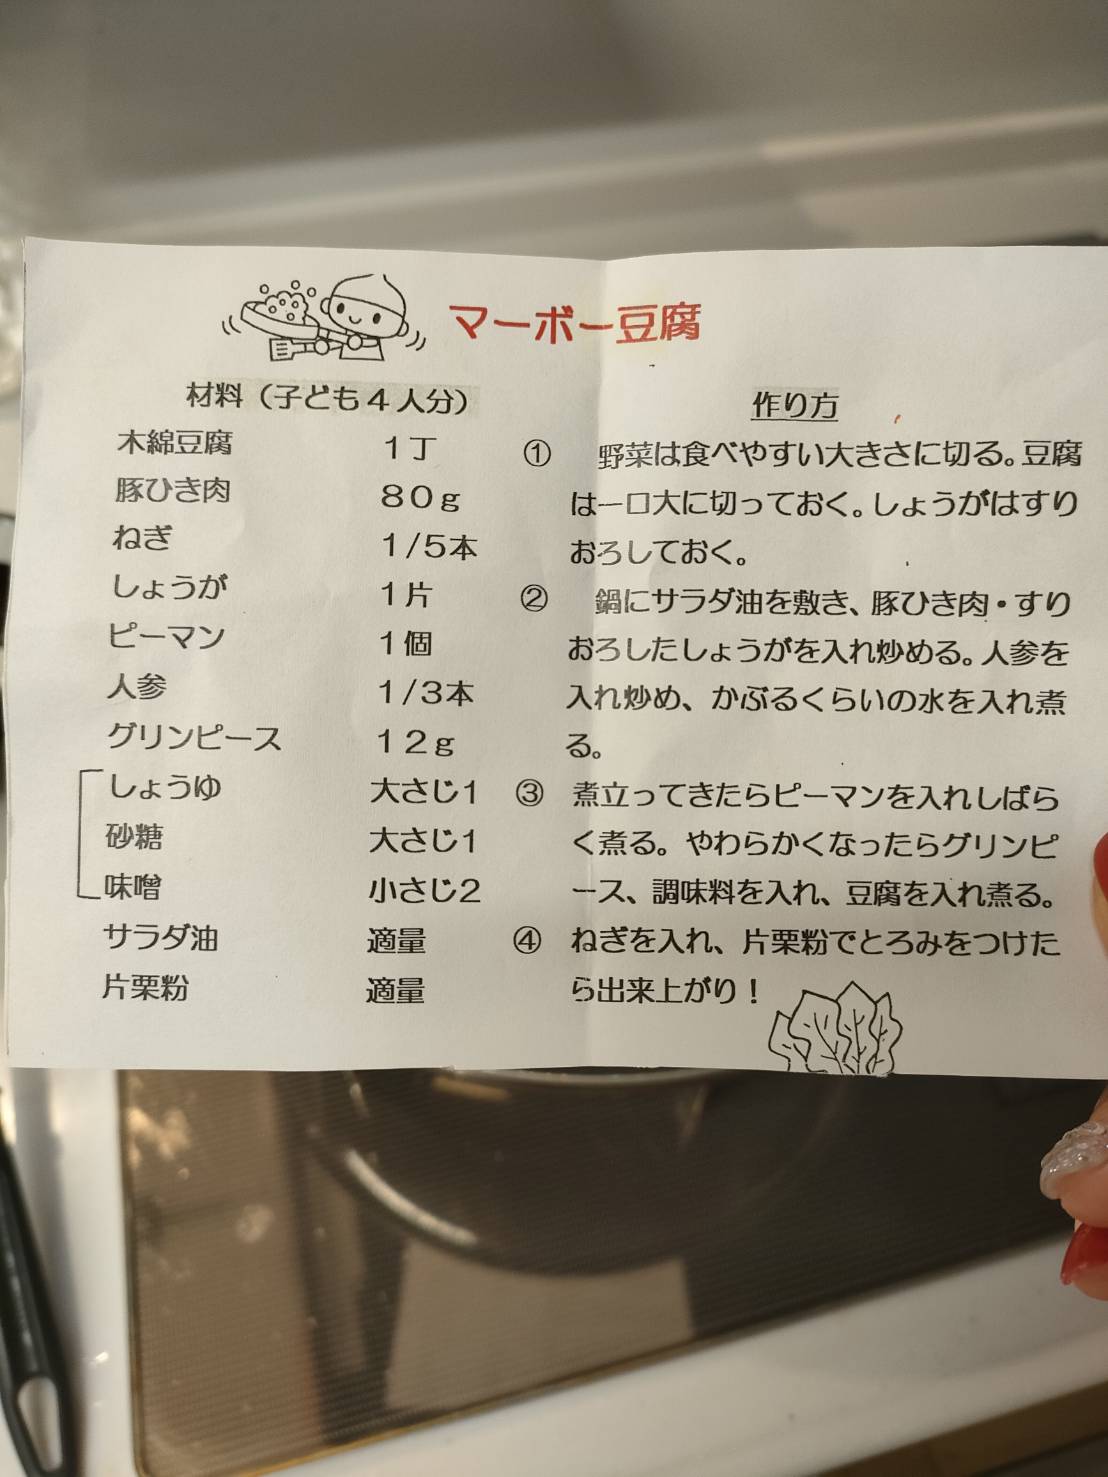 マーボー豆腐
材料（子ども４人分）
木綿豆腐 １丁
豚ひき肉 ８０ｇ
ねぎ １/５本
しょうが １片
ピーマン １個
人参 １/３本
グリンピース １２ｇ
しょうゆ 大さじ１
砂糖 大さじ１
味噌 小さじ２
サラダ油 適量
片栗粉 適量
作り方
① 野菜は食べやすい大きさに切る。豆腐
は一口大に切っておく。しょうがはすり
おろしておく。
② 鍋にサラダ油を敷き、豚ひき肉・すり
おろしたしょうがを入れ炒める。人参を
入れ炒め、かぶるくらいの水を入れ煮
る。
③ 煮立ってきたらピーマンを入れしばら
く煮る。やわらかくなったらグリンピ
ース、調味料を入れ、豆腐を入れ煮る。
④ ねぎを入れ、片栗粉でとろみをつけた
ら出来上がり！